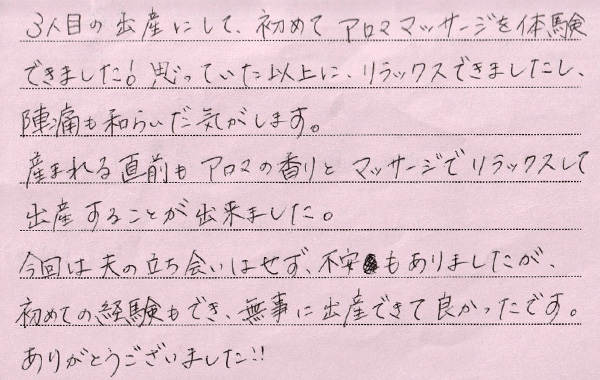 3人目の出産にして、初めてアロママッサージを体験
できました！思っていた以上に、リラックスできましたし、
陣痛も和らいだ気がします。
産まれる直前もアロマの香りとマッサージでリラックスして
出産することが出来ました。
今回は夫の立ち会いはせず、不安もありましたが、
初めての経験もでき、無事に出産できて良かったです。
ありがとうございました!!